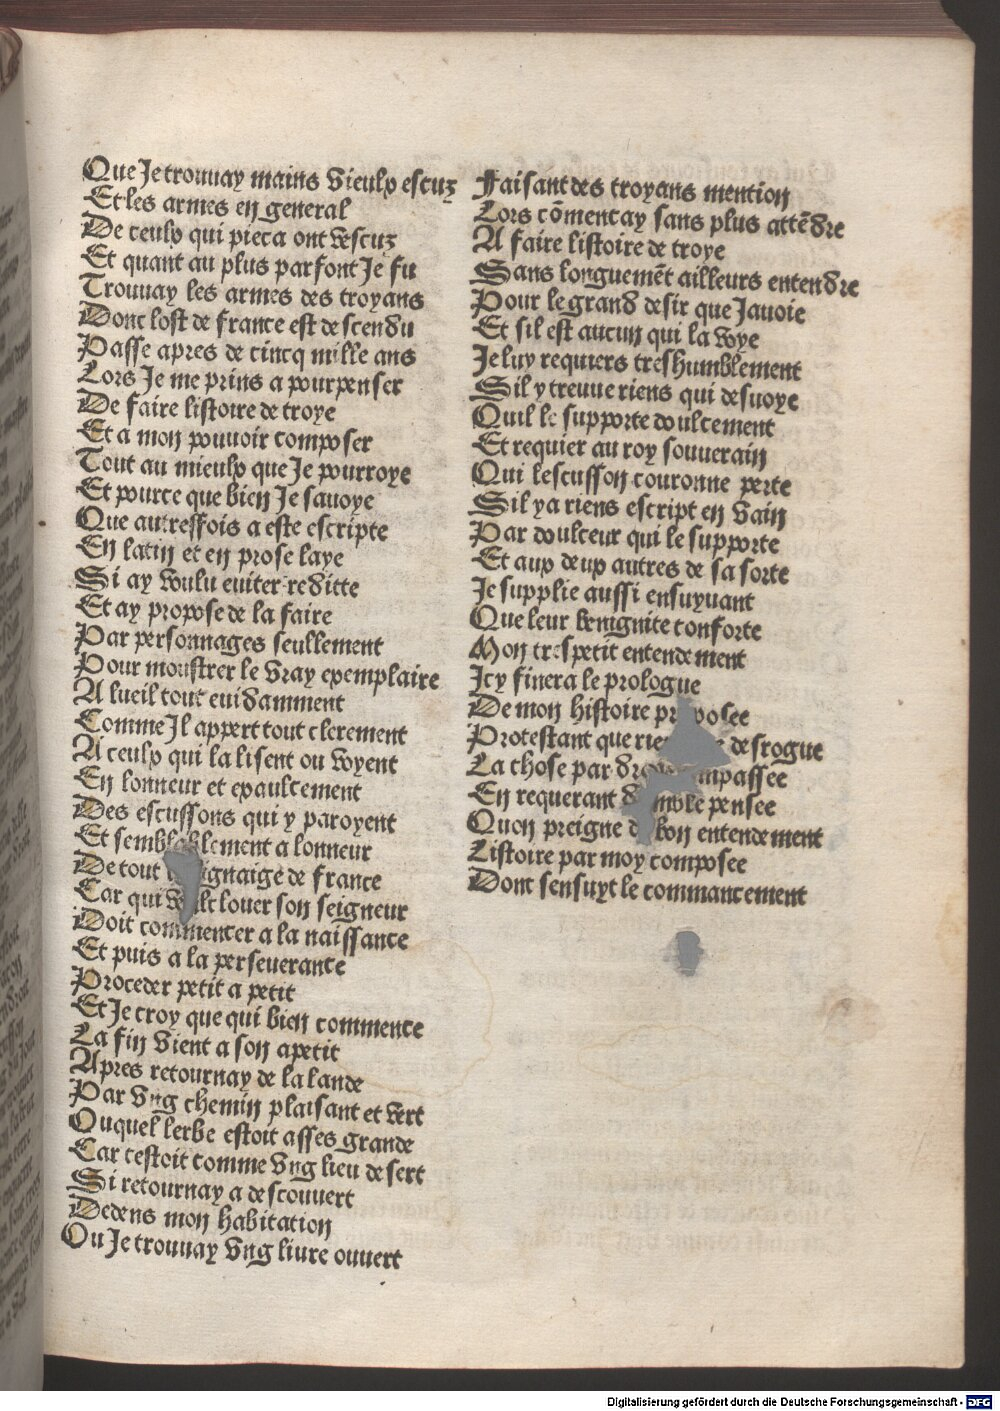 Que Je trouuay mains vieulx escuz
Et les armes en general
De ceulx qui pieca ont vescuz
Et quant au plus parfont Je fu
Trouuay les armes des troyans
Dont lost de france est descendu
Passe apres de cincq mille ans
Lors Je me prins a pourpenser
De faire listoire de troye
Et a mon pouuoir composer
Tout au mieulx que Je pourroye
Et pource que bien Je sauoye
Que autreffois a este escripte
En latin et en prose laye
Si ay voulu euiter reditte
Et ay propose de la faire
Par personnages seullement
Pour monstrer le vray exemplaire
A lueil tout euidamment
Comme Jl appert tout clerement
A ceulx qui la lisent ou voyent
En lonneur et exaulcement
Des escussons qui y paroyent
Et semblablement a lonneur
De tout gnaige de france
Car qui veult louer son seigneur
Doit commencer a la naissance
Et puis a la perseuerance
Proceder petit a petit
Et Je croy que qui bien commence
La fin vient a son apetit
Apres retournay de la lande
Par vng chemin plaisant et vert
Ouquel lerbe estoit asses grande
Car cestoit comme vng lieu desert
Si retournay a descouuert
Dedens mon habitation
Ou Je trouuay vng liure ouuert
Faisant des troyans mention
Lors cõmencay sans plus attẽdre
A faire listoire de troye
Sans longuemẽt ailleurs entendre
Pour le grand desir que Jauoie
Et sil est aucun qui la voye
Je luy requiers treshumblement
Sil y treuue riens qui desuoye
Quil le supporte doulcement
Et requier au roy souuerain
Qui lescusson couronne perte
Sil ya riens escript en vain
Par doulceur qui le supporte
Et aux deux autres de sa sorte
Je supplie aussi ensuyuant
Que leur benignite conforte
Mon trespetit entendement
Icy finera le prologue
De mon histoire pr posee
Protestant que rie desrogue
La chose par dr mpassee
En requerant d mble pensee
Quon preigne d bon entendement
Listoire par moy composee
Dont sensuyt le commancement
Digitalisierung gefördert durch die Deutsche Forschungsgemeinschaft - DFG